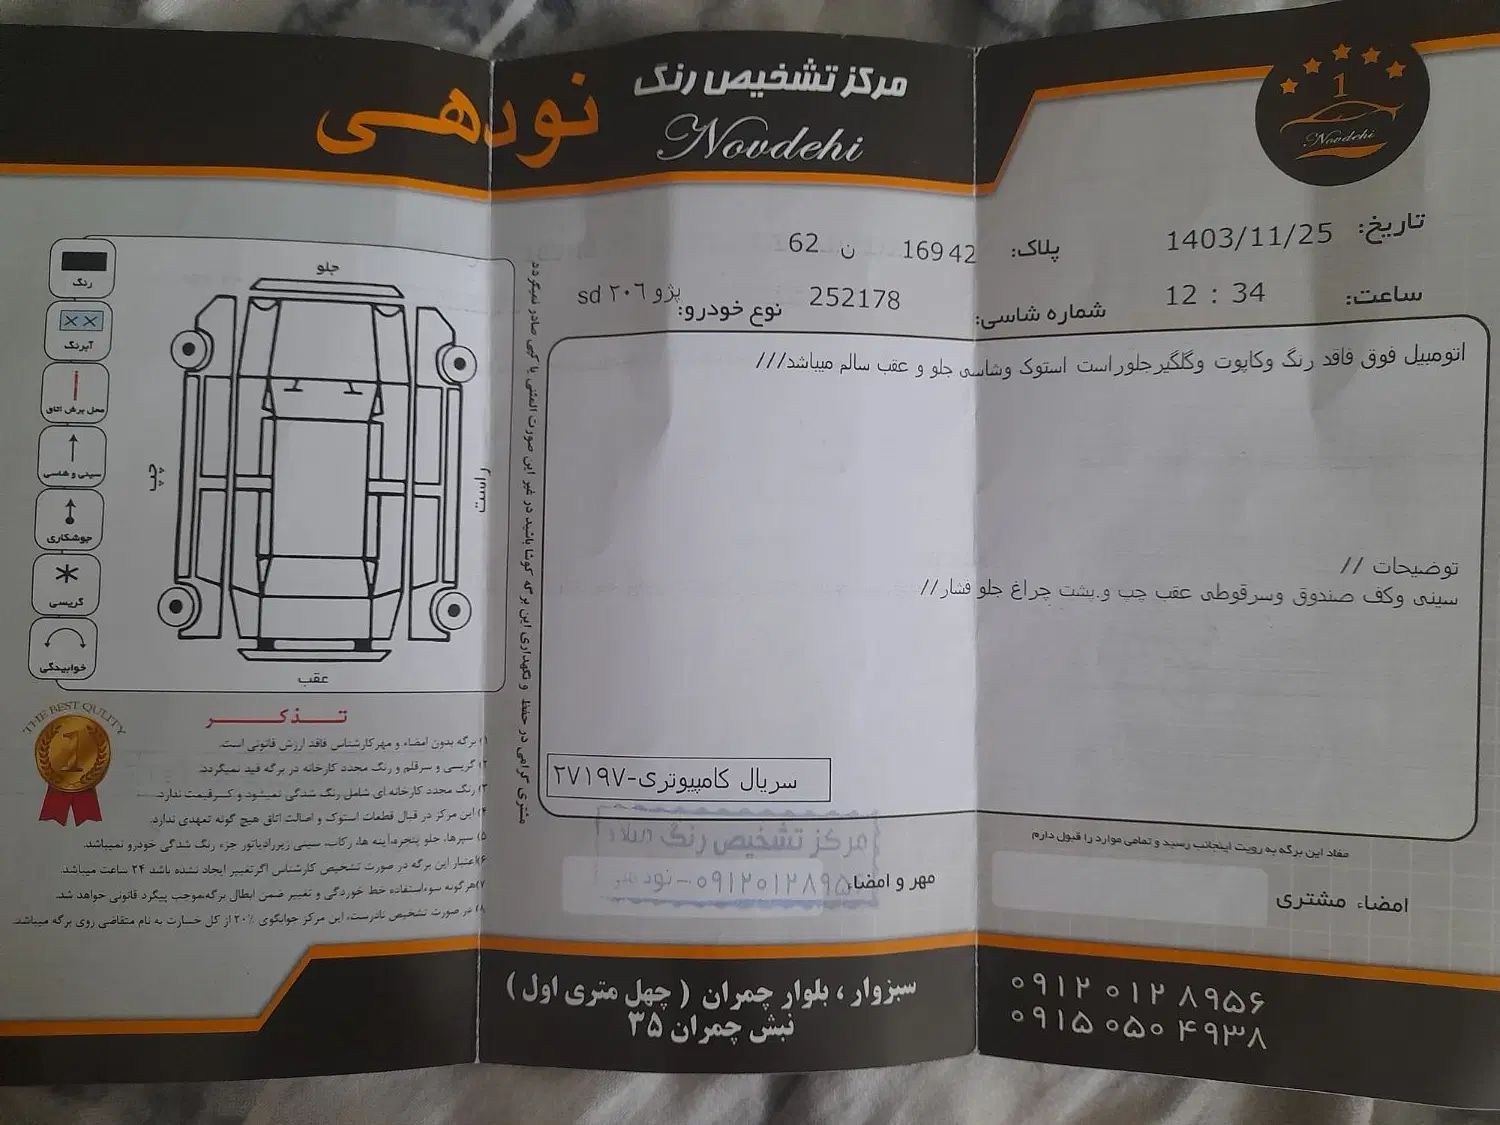 مرکز تشخیص رنگ
نودهی
Novdehi
1
Novdehi
تاریخ: 1403/11/25
پلاک: 42 169 ن 62
ساعت: 34 : 12
شماره شاسی: 252178
نوع خودرو: پژو ۲۰۶ sd
اتومبیل فوق فاقد رنگ وکاپوت وگلگیرجلوراست استوک وشاسی جلو و عقب سالم میباشد///
توضیحات //
سینی وکف صندوق وسرقوطی عقب چپ و.پشت چراغ جلو فشار//
سریال کامپیوتری-۲۷۱۹۷
مفاد این برگه به رویت اینجانب رسید و تمامی موارد را قبول دارم
امضاء مشتری
مهر و امضاء
مرکز تشخیص رنگ
۰۹۱۲۰۱۲۸۹۵
مشتری گرامی در حفظ و نگهداری این برگه کوشا باشید در غیر این صورت المثنی یا کپی صادر نمیگردد
جلو
چپ
راست
عقب
رنگ
آبرنگ
محل برش اتاق
سینی و شاسی
جوشکاری
گریسی
خوابیدگی
THE BEST QULITY
1
تذکر
۱) برگه بدون امضاء و مهر کارشناس فاقد ارزش قانونی است.
۲) گریسی و سرقلم و رنگ مجدد کارخانه در برگه قید نمیگردد.
۳) رنگ مجدد کارخانه ای شامل رنگ شدگی نمیشود و کسرقیمت ندارد.
۴) این مرکز در قبال قطعات استوک و اصالت اتاق هیچ گونه تعهدی ندارد.
۵) سپرها، جلو پنجره، آینه ها، رکاب، سینی زیررادیاتور جزء رنگ شدگی خودرو نمیباشد.
۶) اعتبار این برگه در صورت تشخیص کارشناس اگر تغییر ایجاد نشده باشد ۲۴ ساعت میباشد.
۷) هرگونه سوءاستفاده خط خوردگی و تغییر ضمن ابطال برگه، موجب پیگرد قانونی خواهد شد.
۸) در صورت تشخیص نادرست، این مرکز جوابگوی ۲۰٪ از کل خسارت به نام متقاضی روی برگه میباشد.
سبزوار ، بلوار چمران ( چهل متری اول )
نبش چمران ۳۵
۰۹۱۲ ۰۱۲ ۸۹۵۶
۰۹۱۵ ۰۵۰ ۴۹۳۸